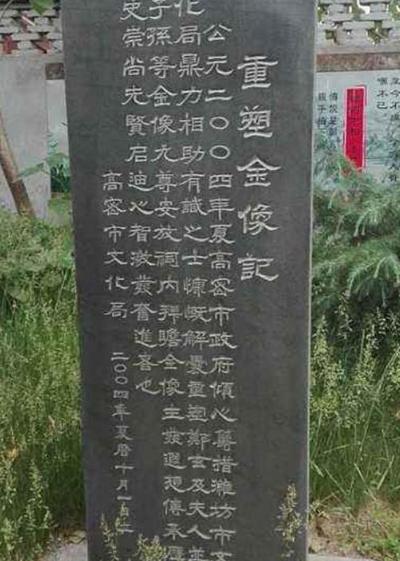 重塑金像記
公元二〇〇四年夏高密市政府傾心籌措濰坊市文
化局鼎力相助有識之士慷慨解囊重塑鄭玄及夫人並
子孫等金像九尊安放祠内拜瞻金像生發遐想傳承歷
史崇尚先賢启迪心智激發奮進喜也
高密市文化局
二〇〇四年夏曆十月一日